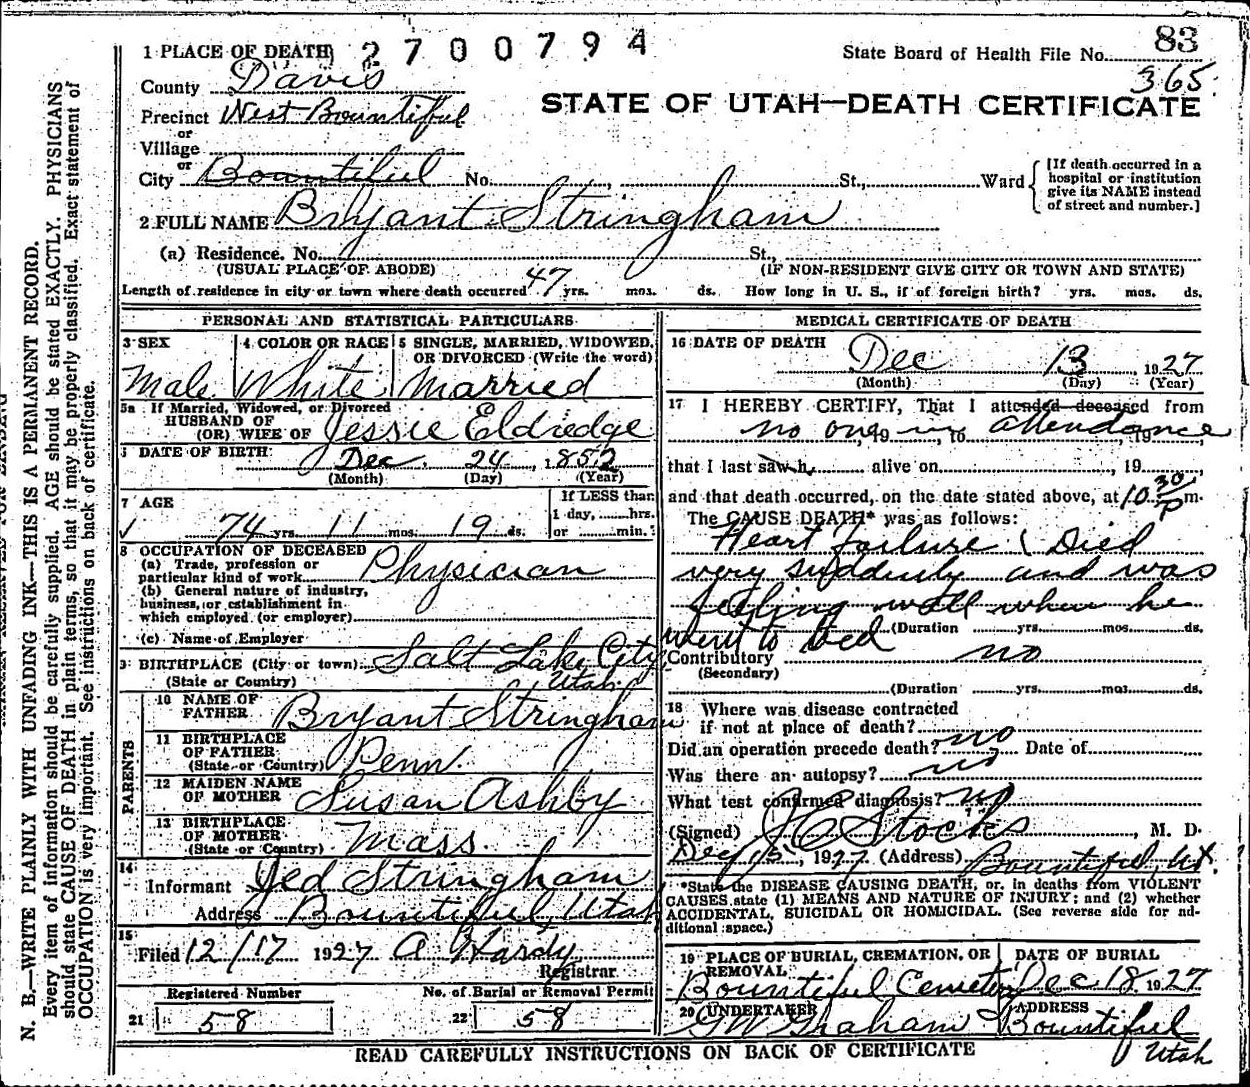 83
1 PLACE OF DEATH 2700794 State Board of Health File No.
365
County Davis
STATE OF UTAH—DEATH CERTIFICATE
Precinct West Bountiful
or
Village
or
City Bountiful No. , St., Ward
[If death occurred in a
hospital or institution
give its NAME instead
of street and number.]
2 FULL NAME Bryant Stringham
(a) Residence. No. St.,
(USUAL PLACE OF ABODE) (IF NON-RESIDENT GIVE CITY OR TOWN AND STATE)
Length of residence in city or town where death occurred 47 yrs. mos. ds. How long in U. S., if of foreign birth? yrs. mos. ds.
PERSONAL AND STATISTICAL PARTICULARS
3 SEX 4 COLOR OR RACE 5 SINGLE, MARRIED, WIDOWED,
OR DIVORCED (Write the word)
Male White Married
5a If Married, Widowed, or Divorced
HUSBAND OF
(OR) WIFE OF Jessie Eldredge
DATE OF BIRTH
Dec. 24, 1852
(Month) (Day) (Year)
7 AGE If LESS than
1 day, hrs.
74 yrs. 11 mos. 19 ds. or min.
8 OCCUPATION OF DECEASED
(a) Trade, profession or
particular kind of work Physician
(b) General nature of industry,
business, or establishment in
which employed (or employer)
(c) Name of Employer
9 BIRTHPLACE (City or town) Salt Lake City
(State or Country) Utah
PARENTS
10 NAME OF
FATHER Bryant Stringham
11 BIRTHPLACE
OF FATHER
(State or Country) Penn.
12 MAIDEN NAME
OF MOTHER Susan Ashby
13 BIRTHPLACE
OF MOTHER
(State or Country) Mass.
14
Informant Jed Stringham
Address Bountiful, Utah
15
Filed 12/17 1927 A Hardy
Registrar
Registered Number No. of Burial or Removal Permit
21 58 22 58
MEDICAL CERTIFICATE OF DEATH
16 DATE OF DEATH
Dec 13, 1927
(Month) (Day) (Year)
17 I HEREBY CERTIFY, That I attended deceased from
no one in attendance
, 19 , to , 19
that I last saw h alive on , 19 ,
and that death occurred, on the date stated above, at 10 30 P m.
The CAUSE DEATH* was as follows:
Heart failure ( Died
very suddenly and was
feeling well when he
went to bed (Duration yrs. mos. ds.
Contributory no
(Secondary)
(Duration yrs. mos. ds.
18 Where was disease contracted
if not at place of death?
Did an operation precede death? no Date of
Was there an autopsy? no
What test confirmed diagnosis? no
(Signed) J C Stocks, M. D.
Dec 15, 1927 (Address) Bountiful, Ut.
*State the DISEASE CAUSING DEATH, or, in deaths from VIOLENT
CAUSES state (1) MEANS AND NATURE OF INJURY; and (2) whether
ACCIDENTAL, SUICIDAL OR HOMICIDAL. (See reverse side for ad-
ditional space.)
19 PLACE OF BURIAL, CREMATION, OR DATE OF BURIAL
REMOVAL
Bountiful Cemetery Dec 18 1927
20 UNDERTAKER ADDRESS
G W Graham Bountiful
Utah
READ CAREFULLY INSTRUCTIONS ON BACK OF CERTIFICATE
N. B.—WRITE PLAINLY WITH UNFADING INK—THIS IS A PERMANENT RECORD.
Every item of information should be carefully supplied. AGE should be stated EXACTLY. PHYSICIANS
should state CAUSE OF DEATH in plain terms, so that it may be properly classified. Exact statement of
OCCUPATION is very important. See instructions on back of certificate.